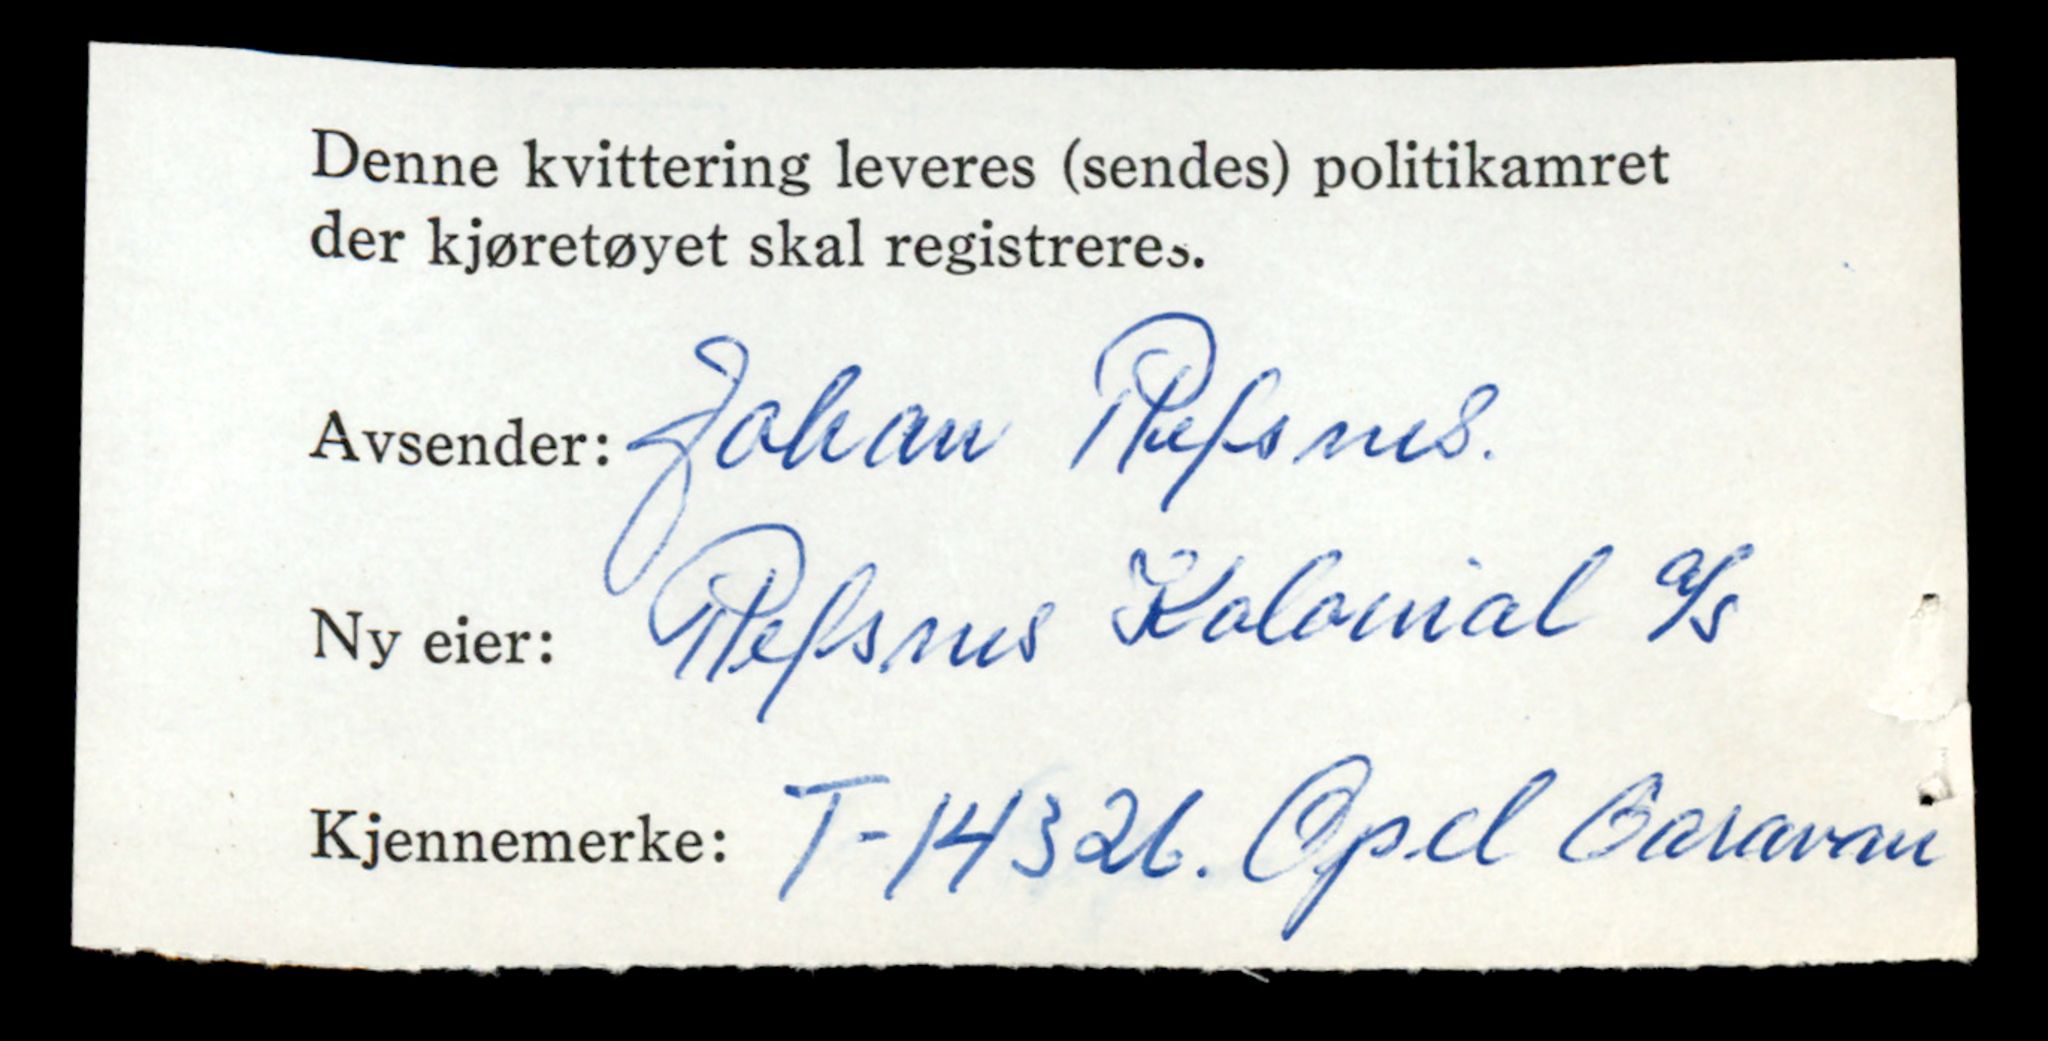 Denne kvittering leveres (sendes) politikamret
der kjøretøyet skal registreres.
Avsender: Johan Refsnes.
Ny eier: Refsnes Kolonial a/s
Kjennemerke: T-14326. Opel Caravan